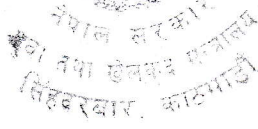 नेपाल सरकार
युवा तथा खेलकुद मन्त्रालय
सिंहदरबार, काठमाडौं